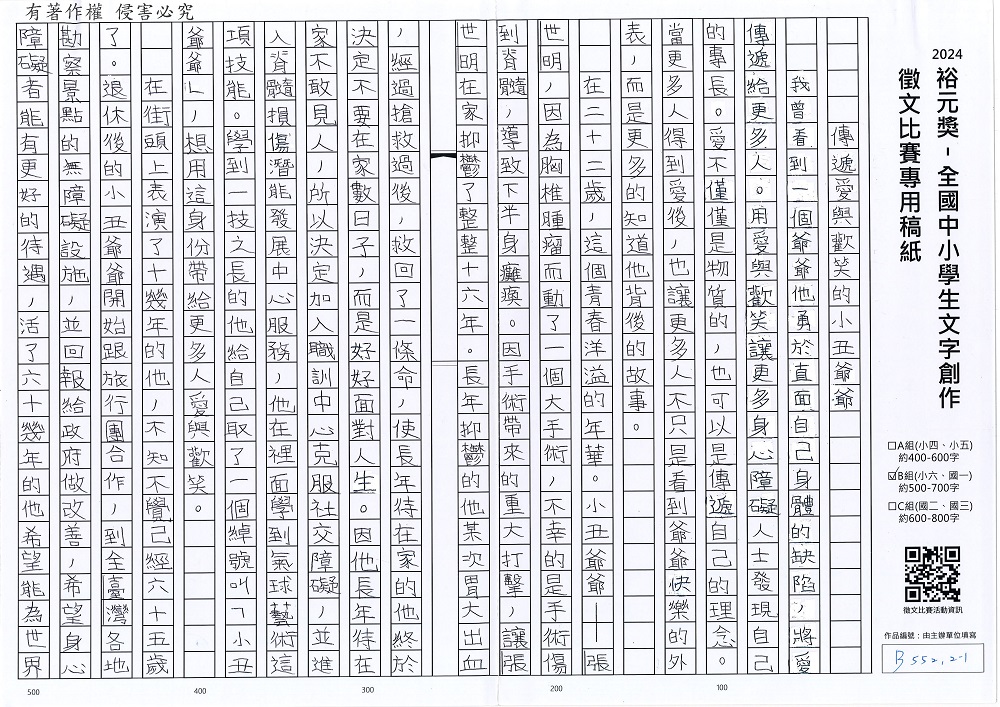 有著作權 侵害必究
2024
裕元獎 - 全國中小學生文字創作
徵文比賽專用稿紙
□A組(小四、小五)
約400-600字
☑B組(小六、國一)
約500-700字
□C組(國二、國三)
約600-800字
徵文比賽活動資訊
作品編號：由主辦單位填寫
B552,2-1
傳遞愛與歡笑的小丑爺爺
我曾看到一個爺爺他勇於直面自己身體的缺陷，將愛
傳遞給更多人。用愛與歡笑讓更多身心障礙人士發現自己
的專長。愛不僅僅是物質的，也可以是傳遞自己的理念。
當更多人得到愛後，也讓更多人不只是看到爺爺快樂的外
表，而是更多的知道他背後的故事。
在二十二歲，這個青春洋溢的年華。小丑爺爺——張
世明，因為胸椎腫瘤而動了一個大手術，不幸的是手術傷
到脊髓，導致下半身癱瘓。因手術帶來的重大打擊，讓張
世明在家抑鬱了整整十六年。長年抑鬱的他某次胃大出血
，經過搶救過後，救回了一條命，使長年待在家的他終於
決定不要在家數日子，而是好好面對人生。因他長年待在
家不敢見人，所以決定加入職訓中心克服社交障礙，並進
入脊髓損傷潛能發展中心服務，他在裡面學到氣球藝術這
項技能。學到一技之長的他給自己取了一個綽號叫「小丑
爺爺」，想用這身份帶給更多人愛與歡笑。
在街頭上表演了十幾年的他，不知不覺己經六十五歲
了。退休後的小丑爺爺開始跟旅行團合作，到全臺灣各地
勘察景點的無障礙設施，並回報給政府做改善，希望身心
障礙者能有更好的待遇，活了六十幾年的他希望能為世界
100
200
300
400
500